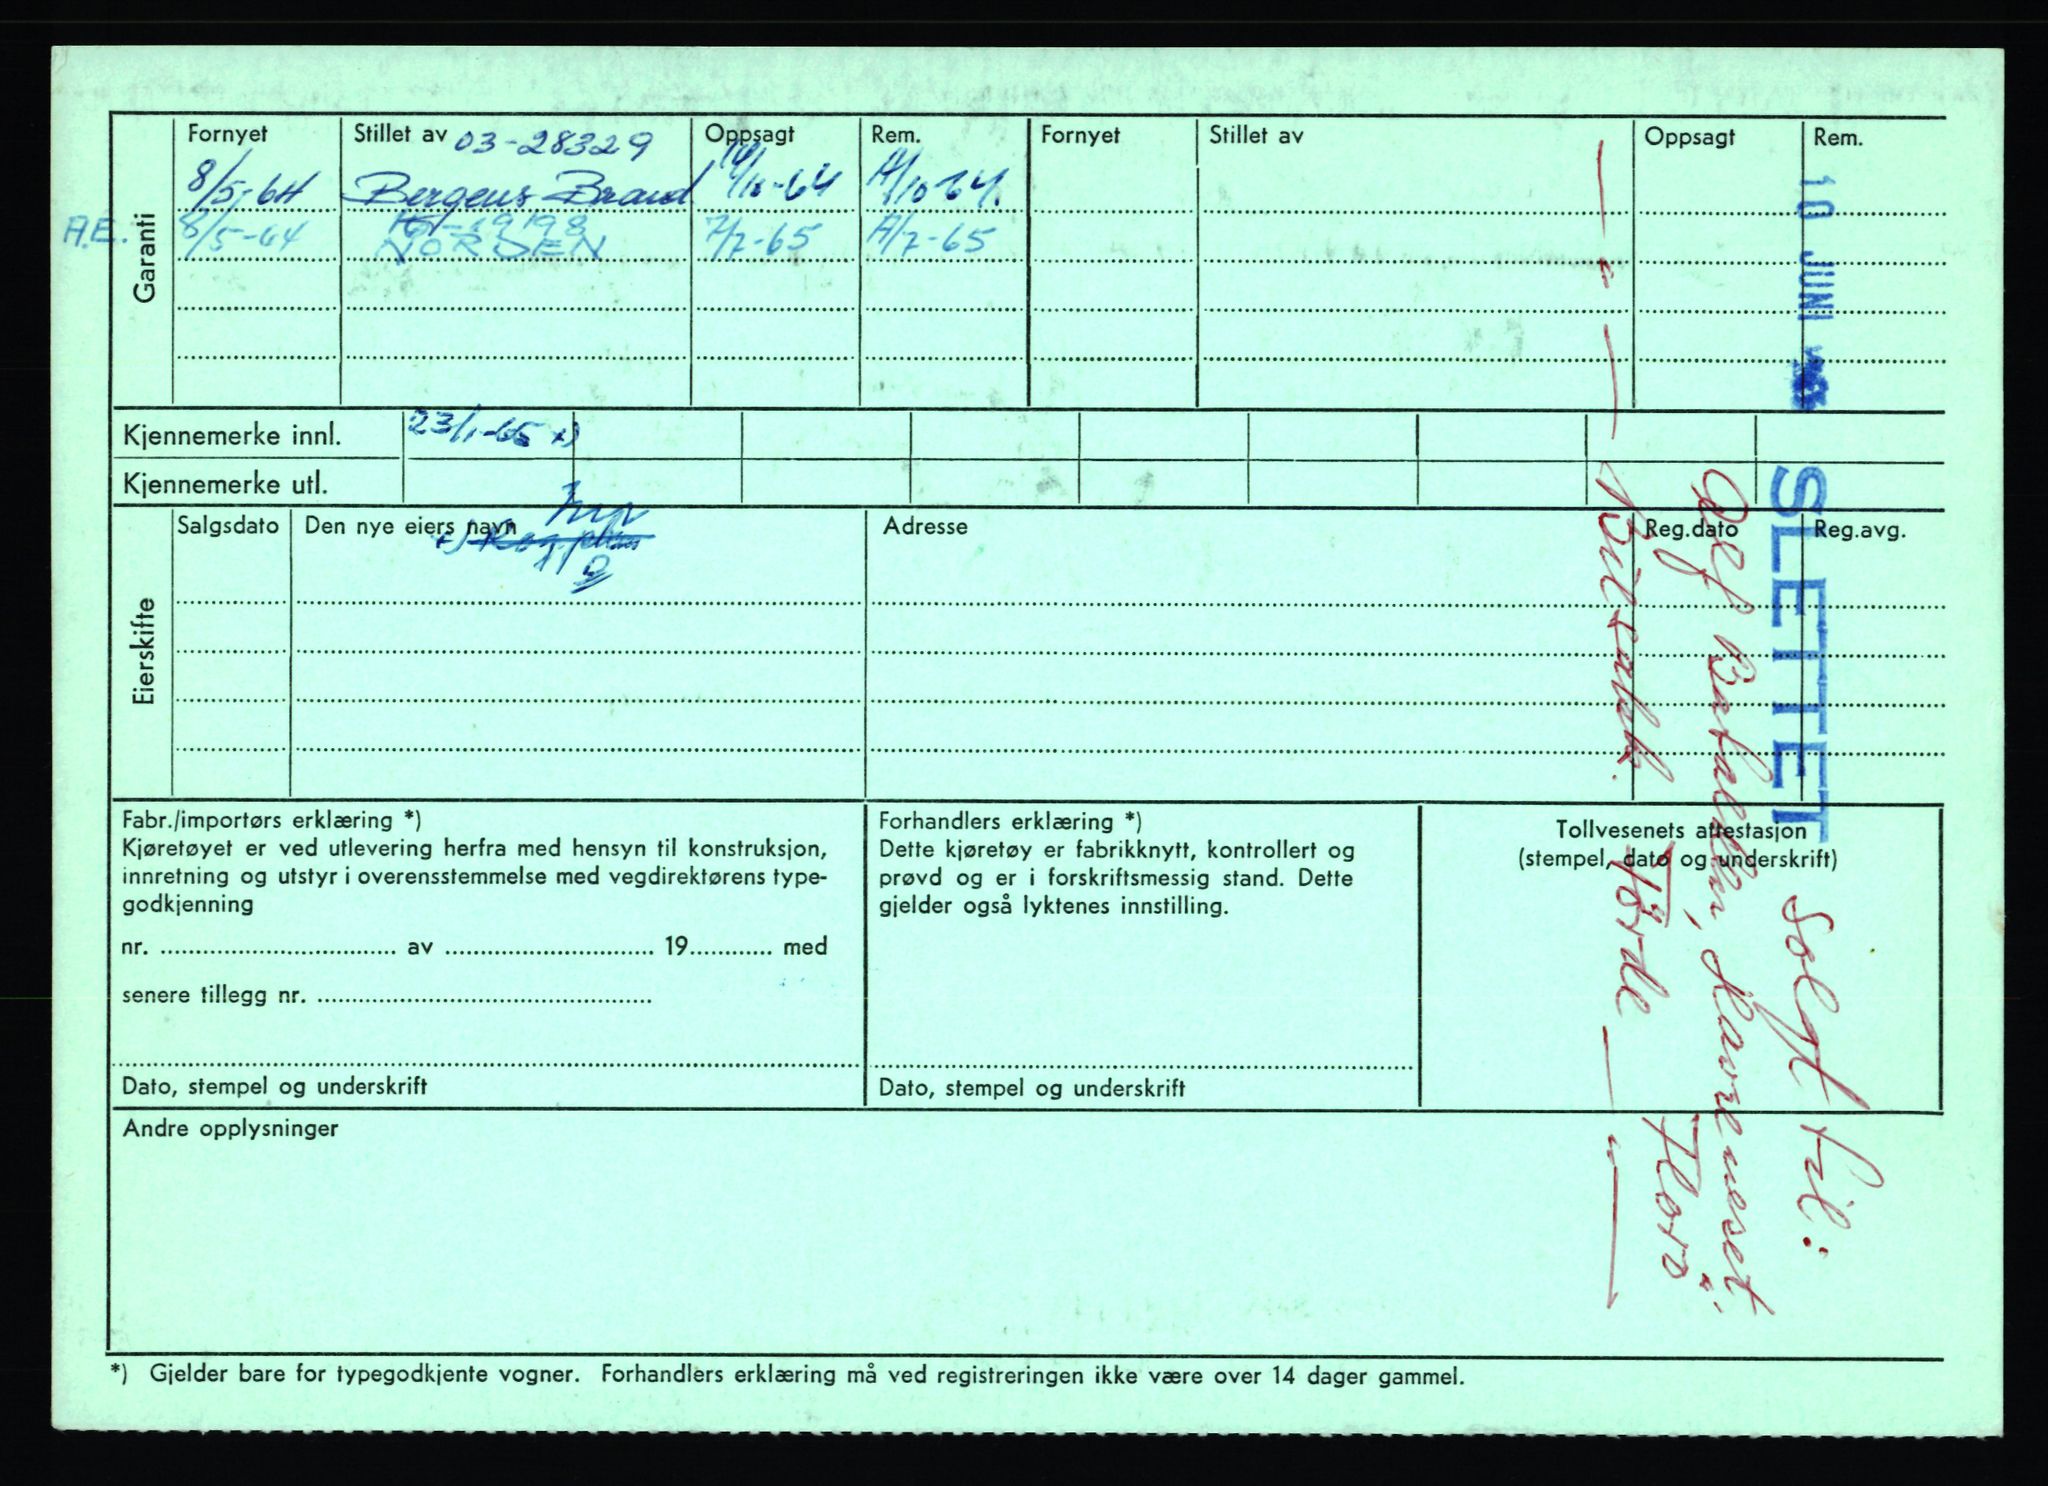 Garanti
Fornyet Stillet av 03-28329 Oppsagt Rem. Fornyet Stillet av Oppsagt Rem.
8/5-64 Bergens Brand /10-64 /10-64.
A.E. 8/5-64 19198 7/7-65 /7-65
NORDEN
Kjennemerke innl. 23/1-65 x)
Kjennemerke utl.
Eierskifte
Salgsdato Den nye eiers navn Adresse Reg.dato Reg.avg.
x) Reg.
10 JUNI
SLETTET
Solgt til:
Havreneset, Florø
— " — Bilsakk. Førde — " —
Fabr./importørs erklæring *)
Kjøretøyet er ved utlevering herfra med hensyn til konstruksjon,
innretning og utstyr i overensstemmelse med vegdirektørens type-
godkjenning
nr. ................ av ................ 19............ med
senere tillegg nr. ................
Dato, stempel og underskrift
Forhandlers erklæring *)
Dette kjøretøy er fabrikknytt, kontrollert og
prøvd og er i forskriftsmessig stand. Dette
gjelder også lyktenes innstilling.
Dato, stempel og underskrift
Tollvesenets attestasjon
(stempel, dato og underskrift)
Andre opplysninger
*) Gjelder bare for typegodkjente vogner. Forhandlers erklæring må ved registreringen ikke være over 14 dager gammel.